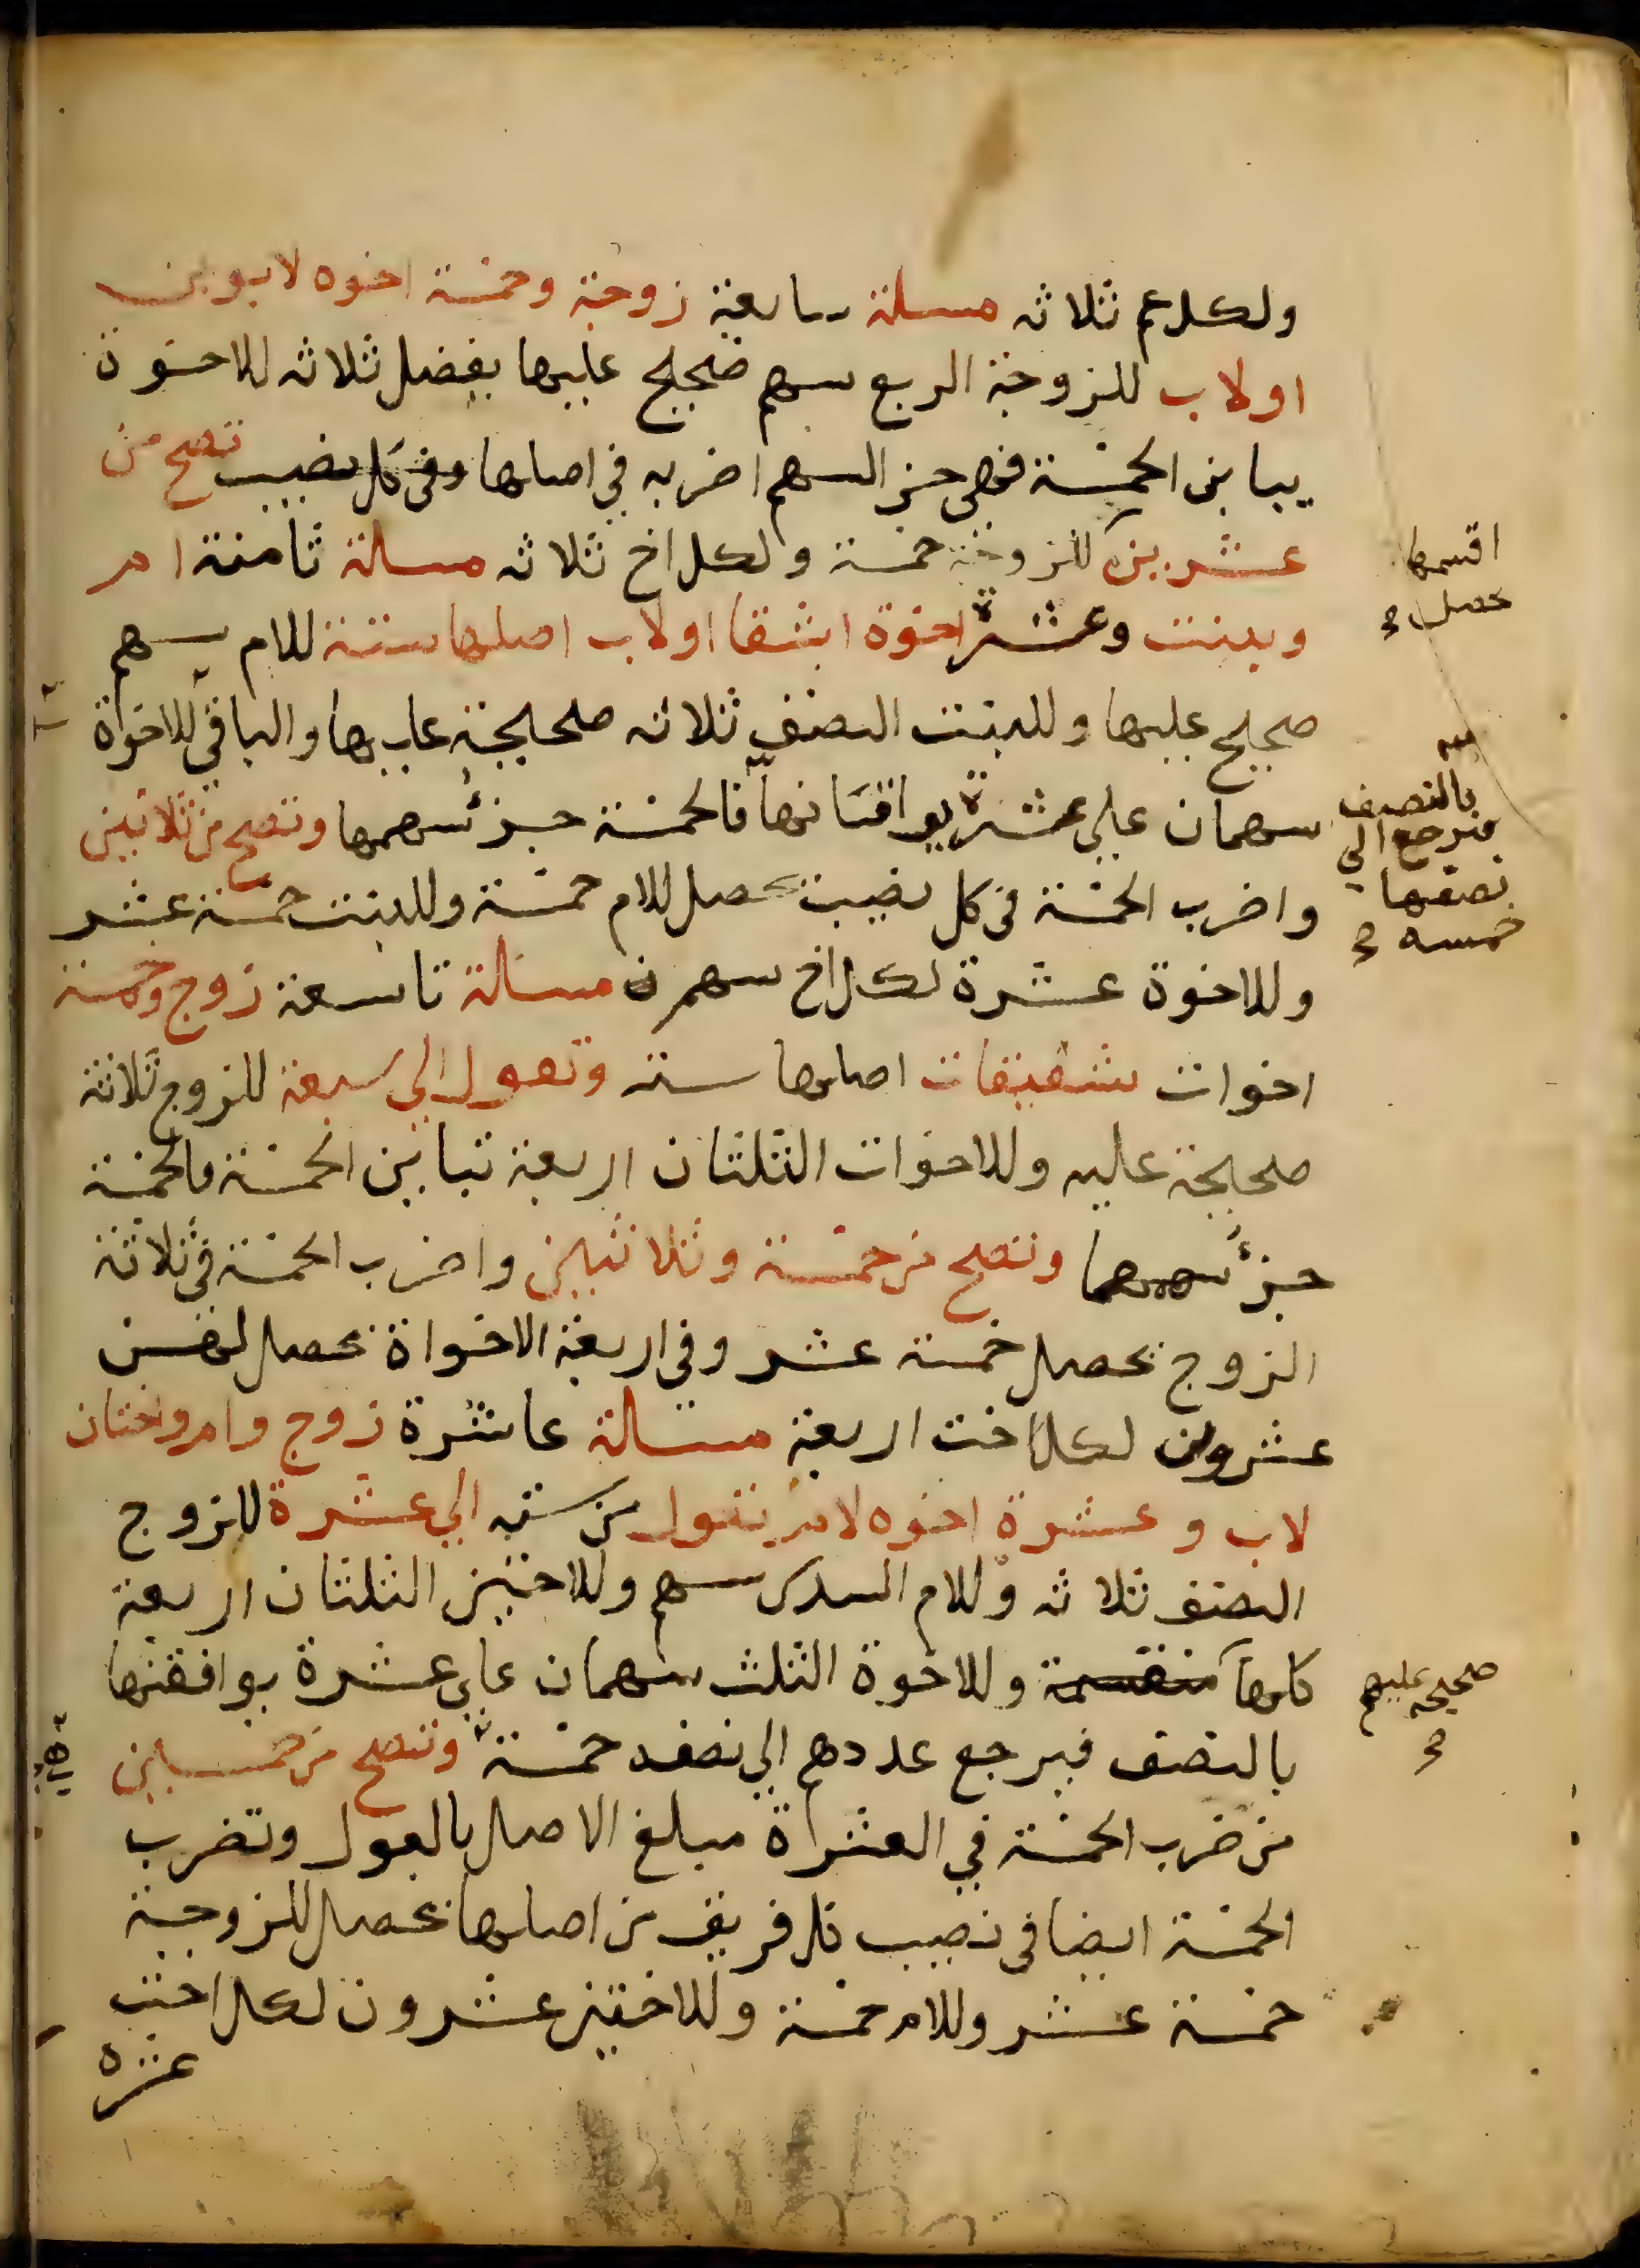 ولكل عم ثلاثه مسلة سابعة زوجة وخمسة اخوه لابوين
اولاب للزوجة الربع سهم صحيح عليها يفضل ثلاثه للاخوة
يباين الخمسة فهي جز السهم اضربه في اصلها وفي كل نصيب تصح من
عشرين للزوجة خمسة ولكل اخ ثلاثه مسلة ثامنة ام
اقسمها
يحصل
وبنت وعشرة اخوة اشقا اولاب اصلها ستة للام سهم
صحيح عليها وللبنت النصف ثلاثه صحيحة عليها والباقي للاخوة
سهمان علي عشرة يوافقانها فالخمسة جزء سهمها وتصح من ثلاثين
بالنصف
فترجع الي
نصفها
خمسه
واضرب الخمسة في كل نصيب يحصل للام خمسة وللبنت خمسة عشر
وللاخوة عشرة لكل اخ سهم مسالة تاسعة زوج وخمسة
اخوات شقيقات اصلها سته وتعول الي سبعة للزوج ثلاثة
صحيحة عليه وللاخوات الثلثان اربعة تباين الخمسة فالخمسة
جزء سهمها وتصح من خمسة وثلاثين واضرب الخمسة في ثلاثة
الزوج يحصل خمسة عشر وفي اربعة الاخواة يحصل لهن
عشرون لكل اخت اربعة مسالة عاشرة زوج وام واختان
لاب وعشرة اخوه لام تعول من سته الي عشرة للزوج
النصف ثلاثه وللام السدس سهم وللاختين الثلثان اربعة
كلها منقسمة وللاخوة الثلث سهمان علي عشرة يوافقها
صحيحه عليهم
بالنصف فيرجع عددهم الي نصفه خمسة وتصح من خمسين
من ضرب الخمسة في العشراة مبلغ الاصل بالعول وتضرب
الخمسة ايضا في نصيب كل فريق من اصلها يحصل للزوجة
خمسة عشر وللام خمسة وللاختين عشرون لكل اخت
عشره